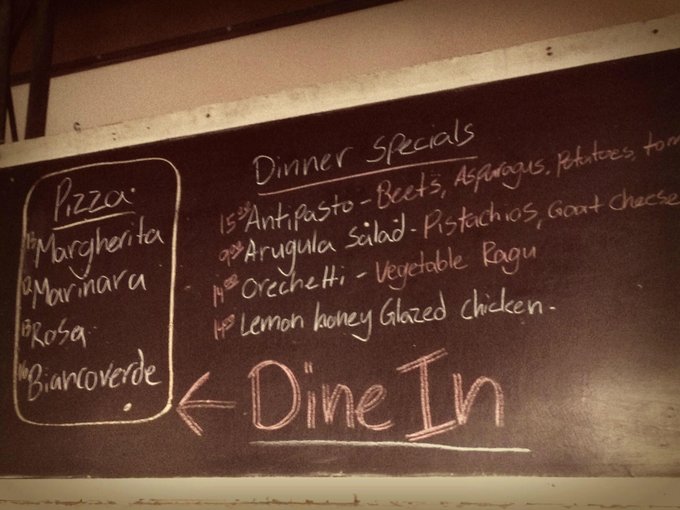 Pizza
13 Margherita
Marinara
13 Rosa
Biancoverde
Dinner Specials
15 Antipasto - Beets, Asparagus, Potatoes, tom
9 Arugula Salad - Pistachios, Goat cheese
14 Orechetti - Vegetable Ragu
14 Lemon honey Glazed chicken.
← Dine In